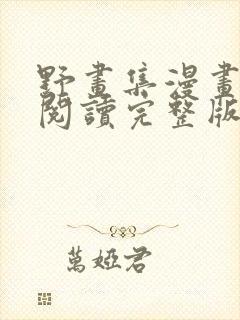 野畫集漫畫
閱讀完整版
萬婭君